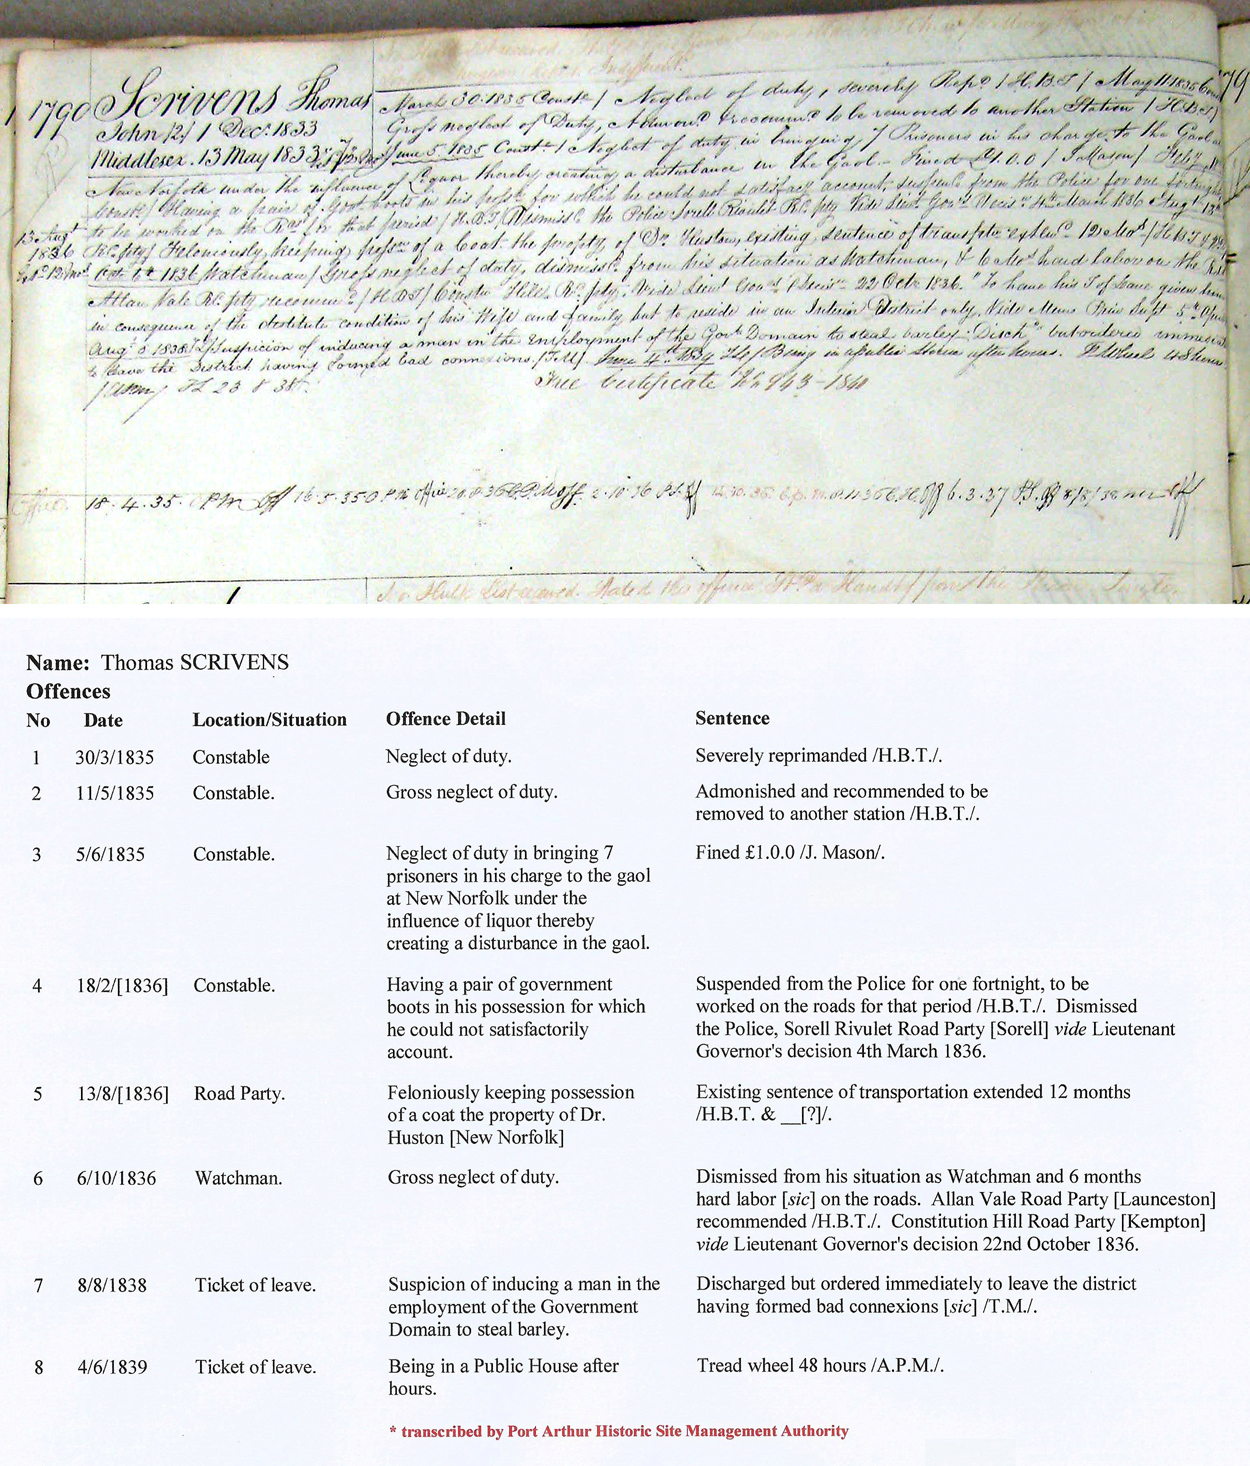 1790 Scrivens Thomas
John (2) 1 Decr. 1833
Middlesex. 13 May 1833
March 30. 1835 Constle/ Neglect of duty, severely Repd / H.B.T / May 11 1835
Gross neglect of Duty, Admond. & recommd. to be removed to another Station / H.B.T/
June 5. 1835 Constle/ Neglect of duty in bringing 7 Prisoners in his charge to the Gaol
New Norfolk under the influence of Liquor thereby creating a disturbance in the Gaol - Fined £1.0.0 / J Mason/
Constle/ Having a pair of Govt boots in his possn for which he could not satisfacy account, suspend from the Police for one fortnight
to be worked on the Rds for that period / H.B.T/ Dismissd the Police Sorell Rivulet Rd. pty Vide Lieut. Govrs Decisn 4th March 1836 Augt 13th
13 Augt
1836
Rd. pty/ Feloniously keeping possn of a Coat the propty, of Dr. Huston, existing sentence of transportn extend. 12 Mos / H.B.T
Oct 6th 1836 Watchman/ Gross neglect of duty, dismissd from his situation as Watchman, & 6 Mos hard labor on the Rds
Allan Vale Rd. pty recommd / H.B.T/ Constn Hill Rd. pty. Vide Lieut Govrs Decisn 22 Octr 1836. To have his T of Leave given him
in consequence of the destitute condition of his Wife and family, but to reside in an Interior District only, Vide Memo
Augt 8 1838 Suspicion of inducing a man in the Employment of the Govt Domain to steal barley. Dischd but ordered immediately
to leave the District having formed bad connexions. /T.M/ June 4th 1839 TL/ Being in a public House after hours. T Wheel 48 hours
TL 23 8 38 Free Certificate No 943 - 1840
18. 4. 35.
Name: Thomas SCRIVENS
Offences
No Date Location/Situation Offence Detail Sentence
1 30/3/1835 Constable Neglect of duty. Severely reprimanded /H.B.T./.
2 11/5/1835 Constable. Gross neglect of duty. Admonished and recommended to be
removed to another station /H.B.T./.
3 5/6/1835 Constable. Neglect of duty in bringing 7 Fined £1.0.0 /J. Mason/.
prisoners in his charge to the gaol
at New Norfolk under the
influence of liquor thereby
creating a disturbance in the gaol.
4 18/2/[1836] Constable. Having a pair of government Suspended from the Police for one fortnight, to be
boots in his possession for which worked on the roads for that period /H.B.T./. Dismissed
he could not satisfactorily the Police, Sorell Rivulet Road Party [Sorell] vide Lieutenant
account. Governor's decision 4th March 1836.
5 13/8/[1836] Road Party. Feloniously keeping possession Existing sentence of transportation extended 12 months
of a coat the property of Dr. /H.B.T. & __[?]/.
Huston [New Norfolk]
6 6/10/1836 Watchman. Gross neglect of duty. Dismissed from his situation as Watchman and 6 months
hard labor [sic] on the roads. Allan Vale Road Party [Launceston]
recommended /H.B.T./. Constitution Hill Road Party [Kempton]
vide Lieutenant Governor's decision 22nd October 1836.
7 8/8/1838 Ticket of leave. Suspicion of inducing a man in the Discharged but ordered immediately to leave the district
employment of the Government having formed bad connexions [sic] /T.M./.
Domain to steal barley.
8 4/6/1839 Ticket of leave. Being in a Public House after Tread wheel 48 hours /A.P.M./.
hours.
* transcribed by Port Arthur Historic Site Management Authority